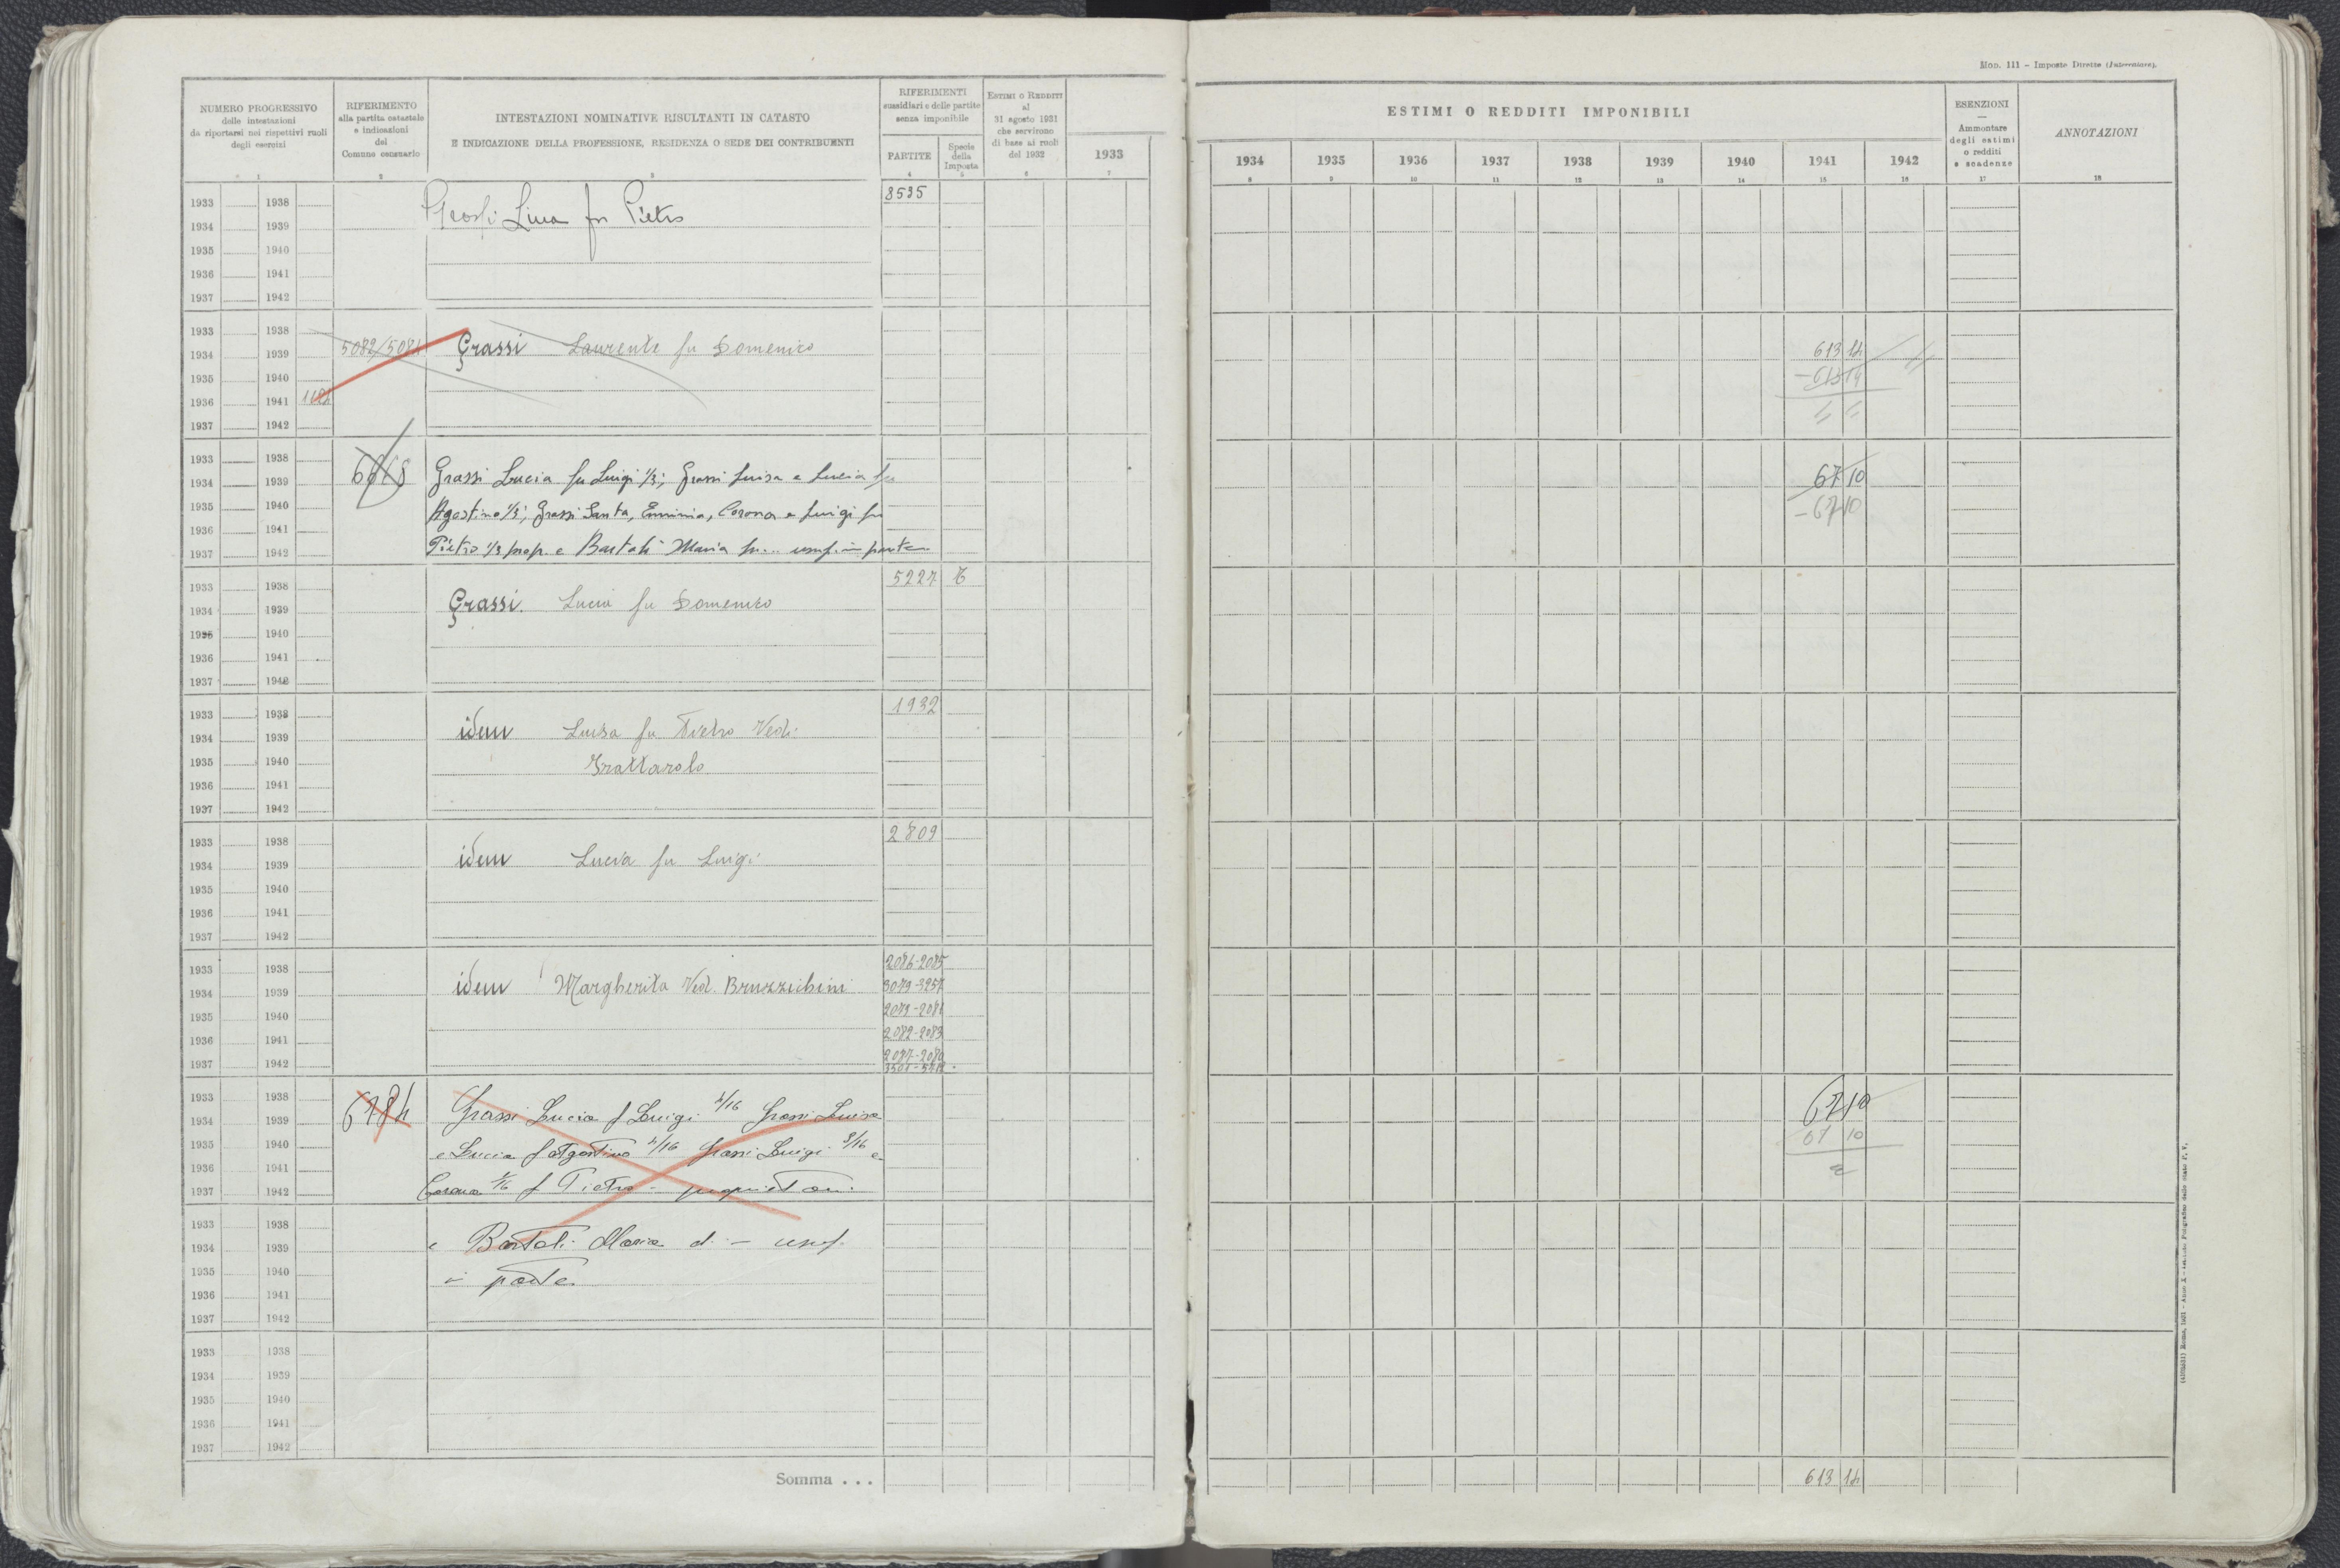 Mod. 111 – Imposte Dirette (Intercalare).
NUMERO PROGRESSIVO
delle intestazioni
da riportarsi nei rispettivi ruoli
degli esercizi
1
RIFERIMENTO
alla partita catastale
e indicazioni
del
Comune censuario
2
INTESTAZIONI NOMINATIVE RISULTANTI IN CATASTO
E INDICAZIONE DELLA PROFESSIONE, RESIDENZA O SEDE DEI CONTRIBUENTI
3
RIFERIMENTI
sussidiari e delle partite
senza imponibile
PARTITE
4
Specie
della
Imposta
5
Estimi o Redditi
al
31 agosto 1931
che servirono
di base ai ruoli
del 1932
6
1933
7
ESTIMI O REDDITI IMPONIBILI
1934 1935 1936 1937 1938 1939 1940 1941 1942
8 9 10 11 12 13 14 15 16
ESENZIONI
—
Ammontare
degli estimi
o redditi
e scadenze
17
ANNOTAZIONI
18
1933 1938 8535
1934 1939 Grassi Lina fu Pietro
1935 1940
1936 1941
1937 1942
1933 1938
1934 1939 5082/5084 Grassi Laurente fu Domenico 613 14
1935 1940 – 613 14
1936 1941
1937 1942
1933 1938
1934 1939 Grassi Lucia fu Luigi 1/3; Grassi Luisa e Lucia fu 67 10
1935 1940 Agostino 1/3; Grassi Santa, Erminia, Corona e Luigi fu – 67 10
1936 1941
1937 1942 Pietro 1/3 prop. e Bartoli Maria fu ... usuf. in parte
1933 1938 5227
1934 1939 Grassi Lucia fu Domenico
1935 1940
1936 1941
1937 1942
1933 1938 1932
1934 1939 idem Luisa fu Pietro Ved.
1935 1940 Grattarolo
1936 1941
1937 1942
1933 1938 2809
1934 1939 idem Lucia fu Luigi
1935 1940
1936 1941
1937 1942
1933 1938 2086-2085
1934 1939 idem Margherita Ved. Bruzzichini 3079-3257
1935 1940 2079-2081
1936 1941 2082-2083
1937 1942 2087-2080
1933 1938
1934 1939 6784 Grassi Lucia f Luigi 4/16 Grassi Luisa 67 10
1935 1940 e Lucia f Agostino 4/16 Grassi Luigi 3/16 e 67 10
1936 1941
1937 1942 Corona f Pietro – proprietari
1933 1938
1934 1939 e Bartoli Maria d. – usuf.
1935 1940 in parte
1936 1941
1937 1942
1933 1938
1934 1939
1935 1940
1936 1941
1937 1942
Somma . . . 613 14